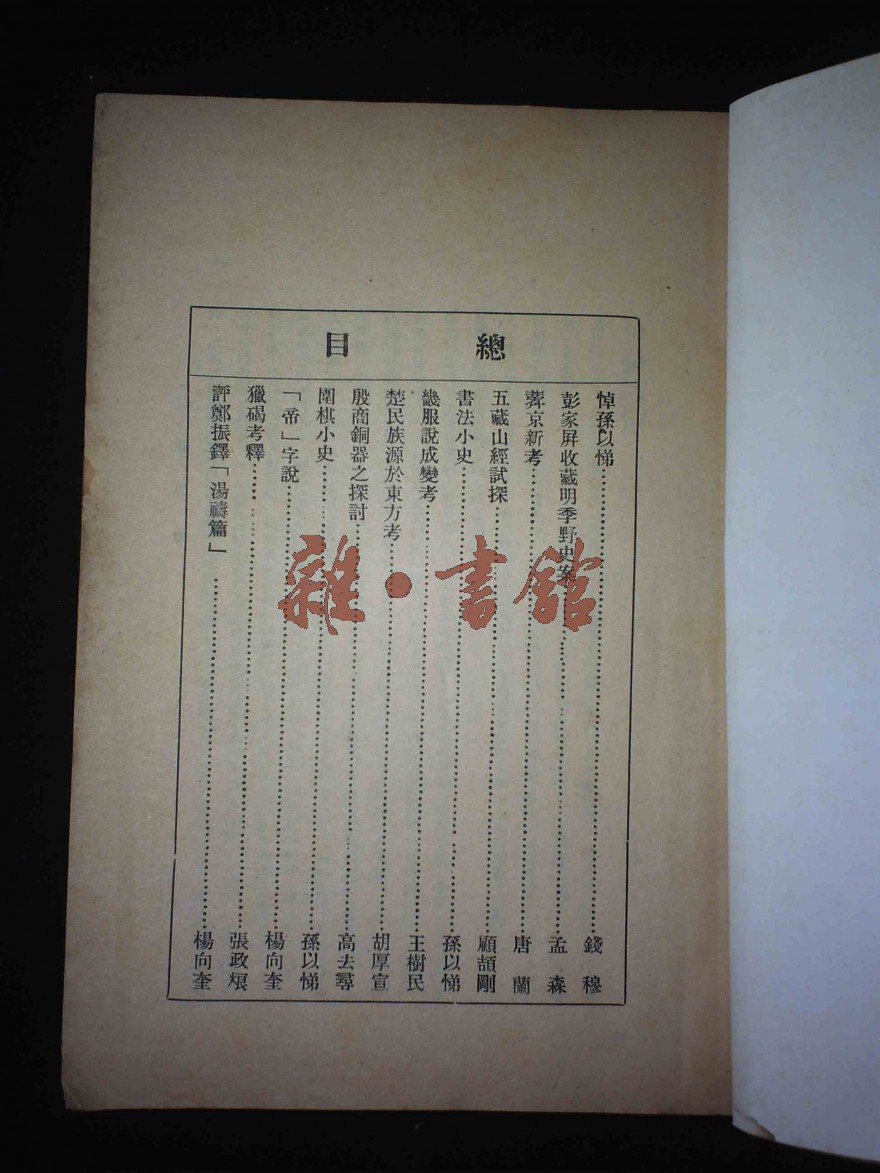 總目
悼孫以悌……錢穆
彭家屏收藏明季野史案……孟森
莽京新考……唐蘭
五藏山經試探……顧頡剛
書法小史……孫以悌
畿服說成變考……王樹民
楚民族源於東方考……胡厚宣
殷商銅器之探討……高去尋
圍棋小史……孫以悌
「帝」字說……楊向奎
獵碣考釋……張政烺
評鄭振鐸「湯禱篇」……楊向奎
雜·書館